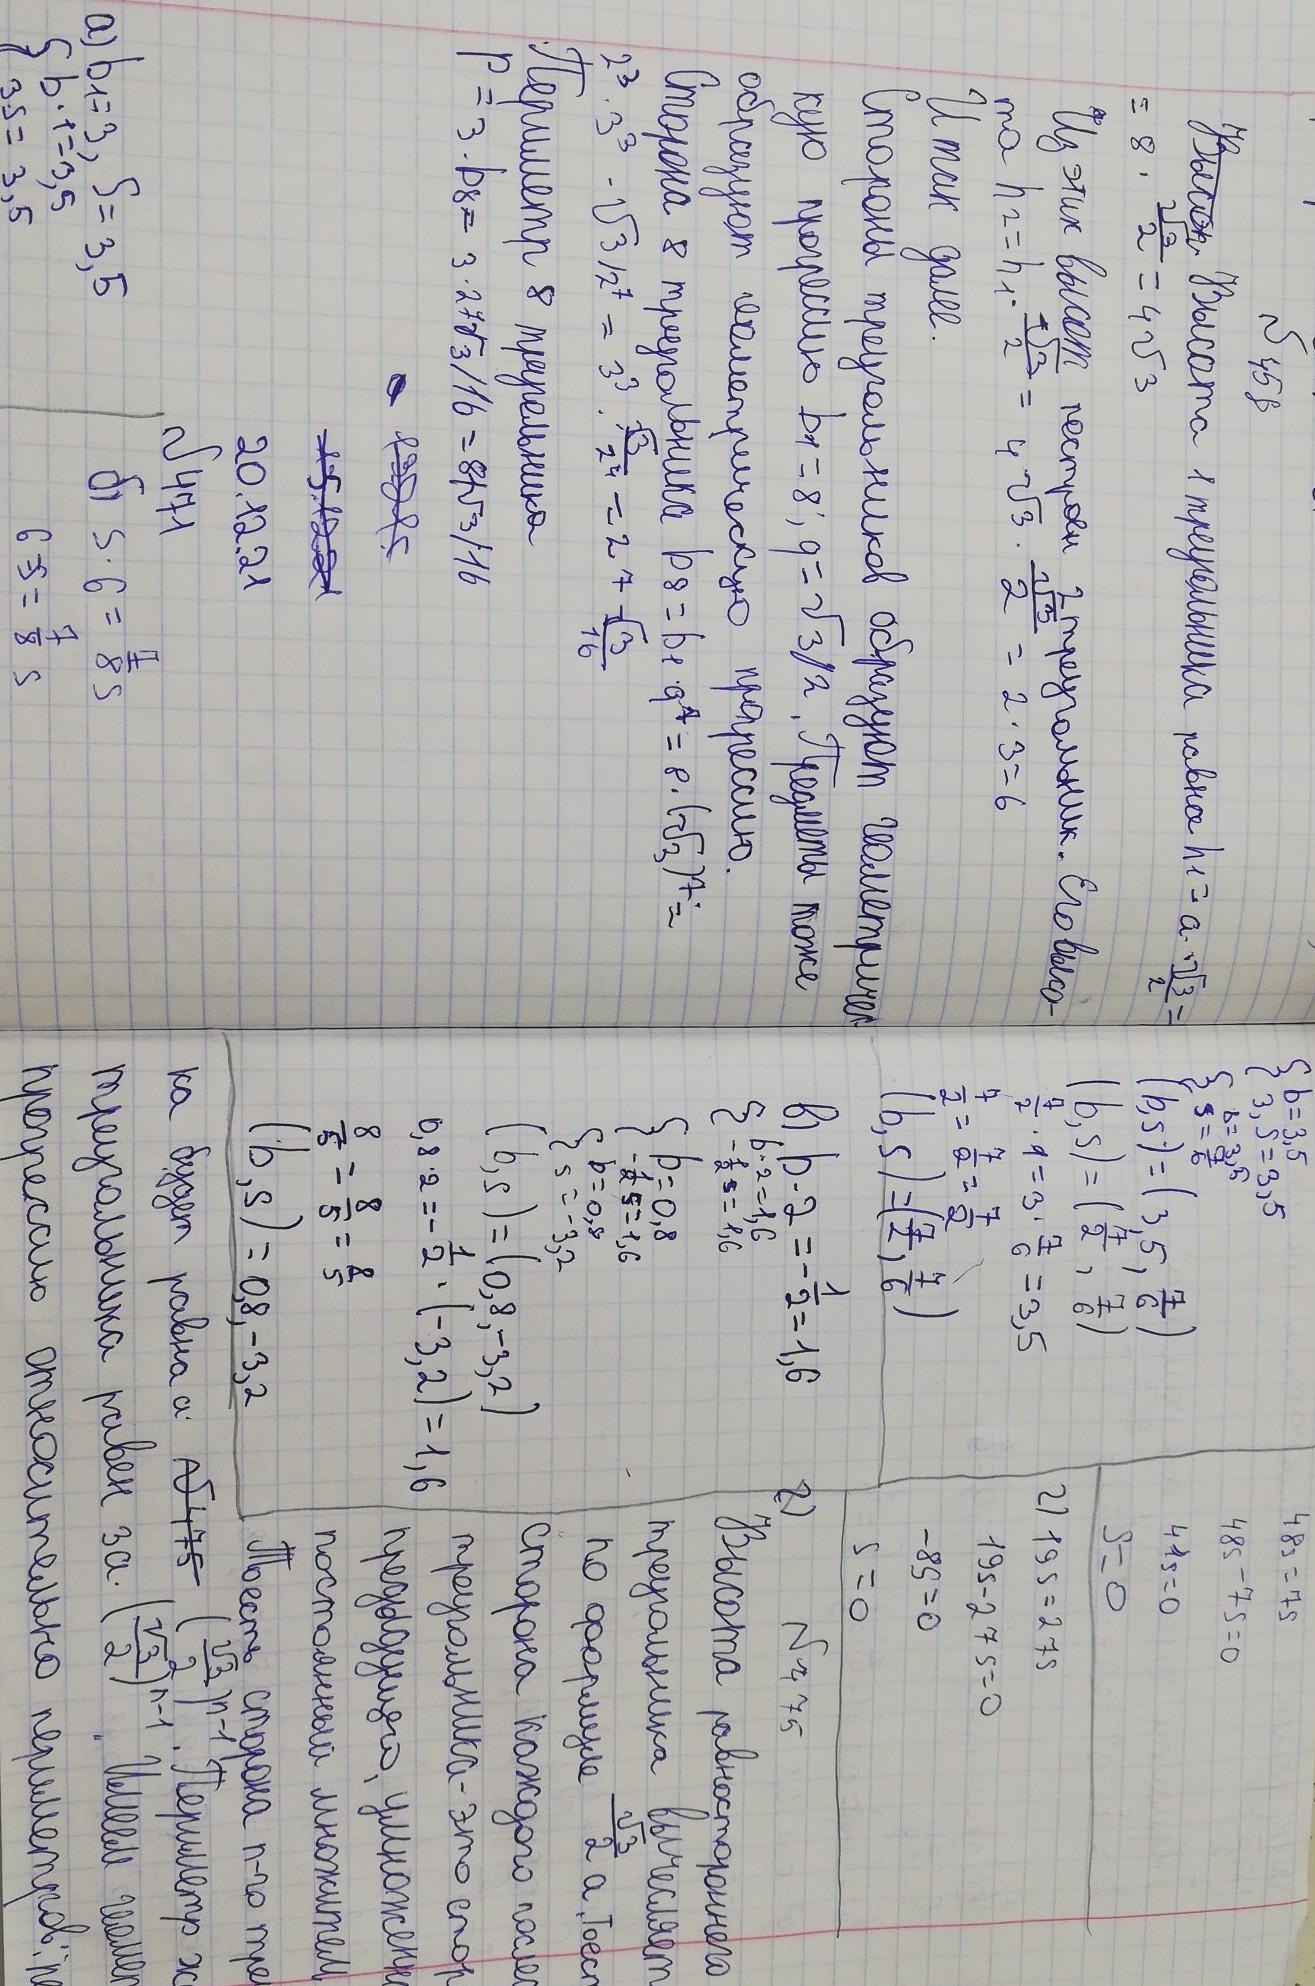 №458
Высота 1 треугольника равна h1 = a·√3/2 =
= 8·√3/2 = 4√3
Из этих высот построен 2 треугольник. Его высо-
та h2 = h1·√3/2 = 4√3·√3/2 = 2·3=6
И так далее.
Стороны треугольников образуют геометричес
кую прогрессию b1 = 8; q = √3/2. Предметы тоже
образуют геометрическую прогрессию.
Сторона 8 треугольника b8 = b1·q⁷ = 8·(√3)⁷ =
2³·3³·√3/2⁷ = 3³·√3/2⁴ = 27√3/16
Периметр 8 треугольника
P = 3·b8 = 3·27√3/16 = 81√3/16
20.12.21
№471
а) b1=3, S=3,5
{ b·1=3,5
3S=3,5
б) S·6 = 7/8 S
6S = 7/8 S
{ b=3,5
3,S=3,5
{ b=3,5
S=7/6
(b,S) = (3,5, 7/6)
(b,S) = (7/2, 7/6)
7/2·1=3·7/6=3,5
7/2=7/2=7/2
(b,S)=(7/2, 7/6)
в) b·2=-1/2=1,6
{ b·2=1,6
-1/2 S=1,6
{ b=0,8
-1/2 S=1,6
{ b=0,8
S=-3,2
(b,S) = (0,8,-3,2)
0,8·2=-1/2·(-3,2)=1,6
8/5=8/5=8/5
(b,S) = 0,8,-3,2
48S=7S
48S-7S=0
41S=0
S=0
г) 19S=27S
19S-27S=0
-8S=0
S=0
г) №475
Высота равностороннего
треугольника вычесляет
по формуле √3/2 a, тоест
Сторона каждого послед
треугольника-это стор
предыдущего, умноженн
постоянный множител
Тоесть сторона n-го тре
ка будет равна a (√3/2)ⁿ⁻¹. Периметр ж
треугольника равен 3a·(√3/2)ⁿ⁻¹. Имеем геомет
прогрессию относительно периметров: